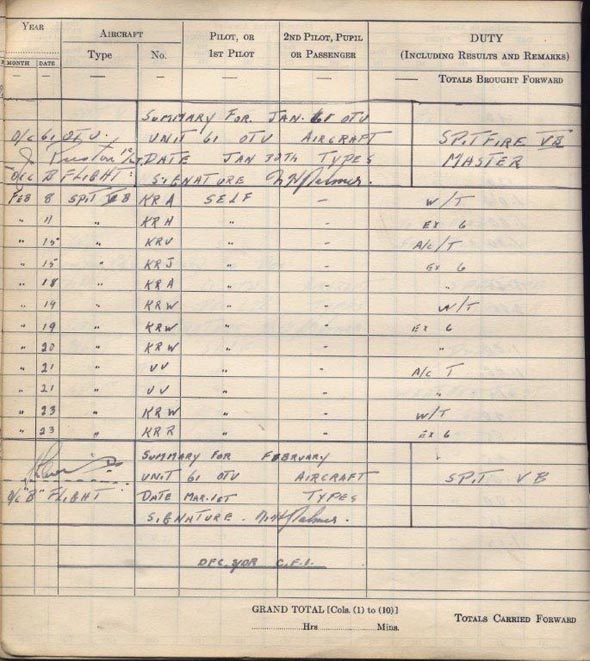 YEAR AIRCRAFT PILOT, OR 2ND PILOT, PUPIL DUTY
MONTH DATE Type No. 1ST PILOT OR PASSENGER (INCLUDING RESULTS AND REMARKS)
— — — — — — — TOTALS BROUGHT FORWARD
SUMMARY FOR. JAN. 61 OTU
O/C 61 OTU. UNIT 61 OTU AIRCRAFT SPITFIRE VB
DATE JAN TYPES MASTER
O/C B FLIGHT: SIGNATURE Palmer.
FEB 8 SPIT VB KR A SELF - W/T
" 11 " KR H " - EX 6
" 15 " KR V " - A/C/T
" 15 " KR J " - EX 6
" 18 " KR A " - "
" 19 " KR W " - W/T
" 19 " KR W " - EX 6
" 20 " KR W " - "
" 21 " UV " - A/C T
" 21 " UV " - "
" 23 " KR W " - W/T
" 23 " KR R " - EX 6
SUMMARY FOR FEBRUARY
UNIT 61 OTU AIRCRAFT SPIT VB
O/C "B" FLIGHT DATE MAR. 1ST TYPES
SIGNATURE. Palmer.
C.F.I.
GRAND TOTAL [Cols. (1) to (10)]
Hrs Mins. TOTALS CARRIED FORWARD